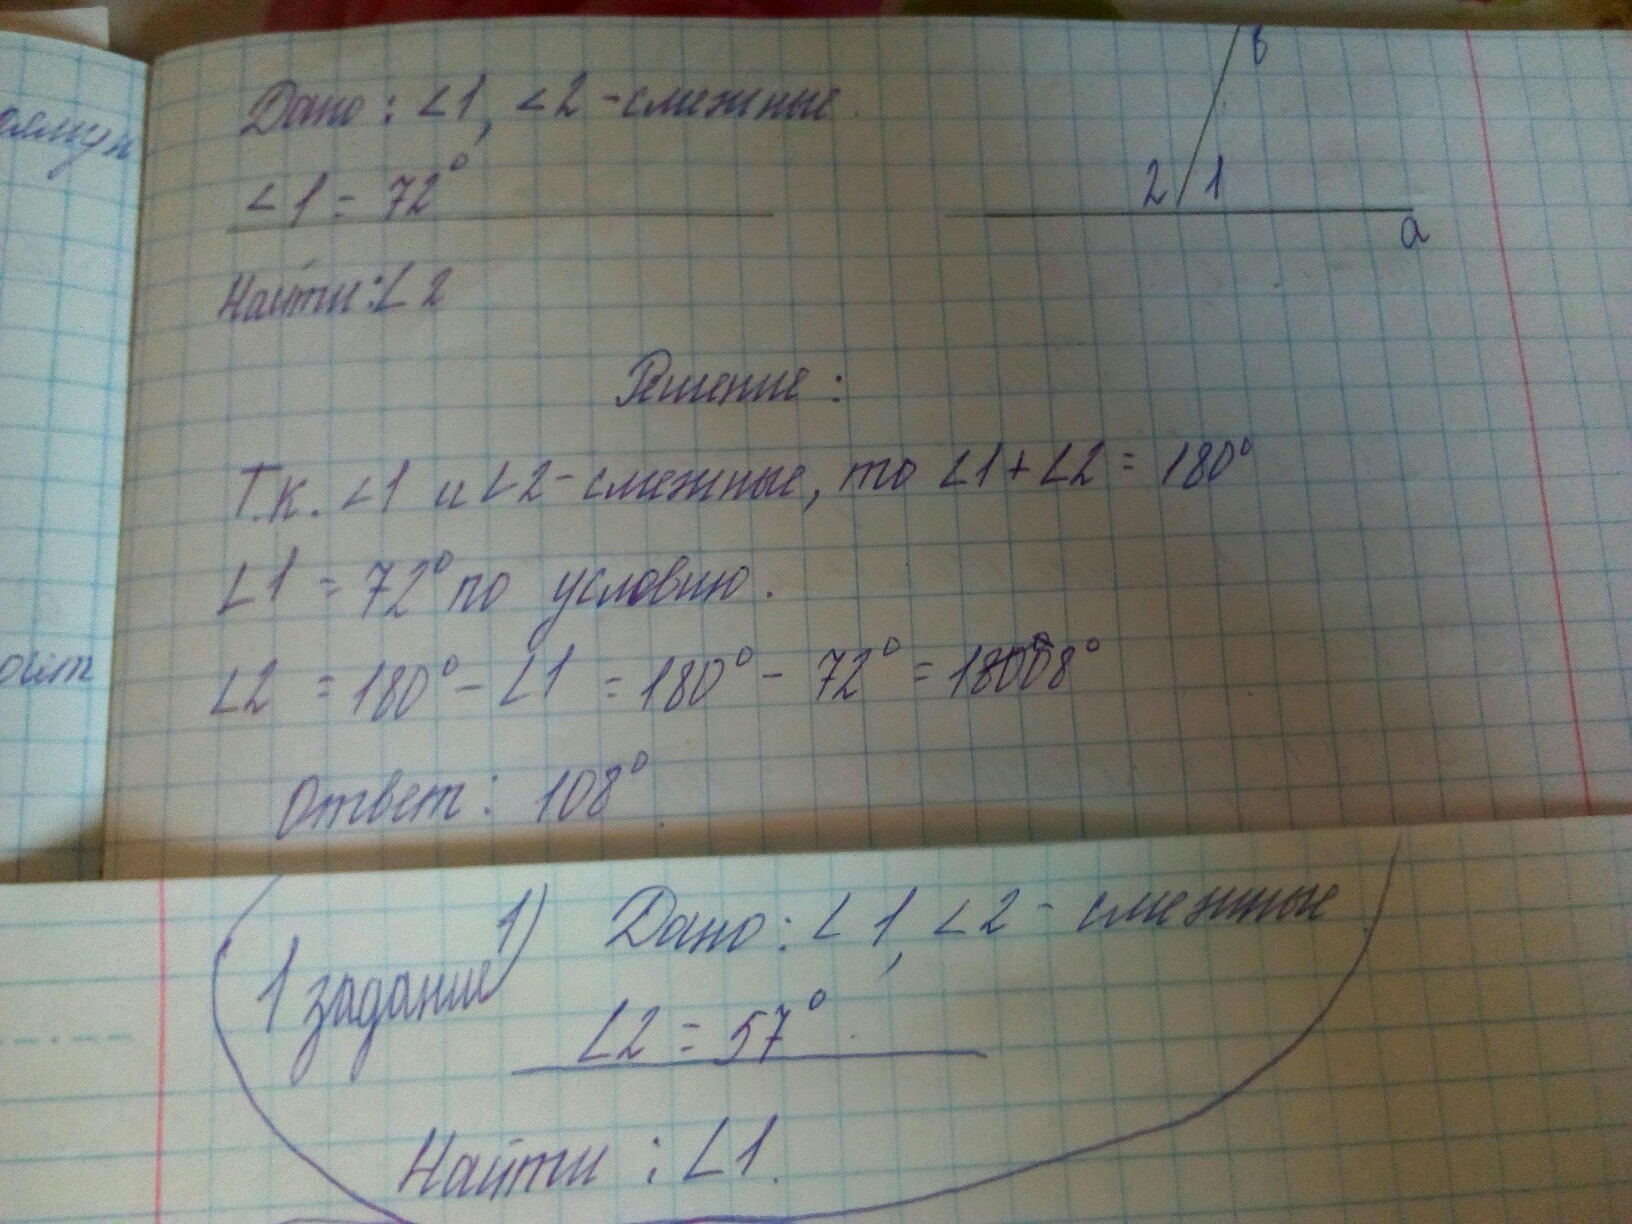 Дано: ∠1, ∠2 - смежные.
∠1 = 72°
Найти: ∠2
в
2 1
а
Решение:
Т.к. ∠1 и ∠2 - смежные, то ∠1 + ∠2 = 180°
∠1 = 72° по условию.
∠2 = 180° - ∠1 = 180° - 72° =
Ответ: 108°.
1 задание
1) Дано: ∠1, ∠2 - смежные
∠2 = 57°.
Найти: ∠1.